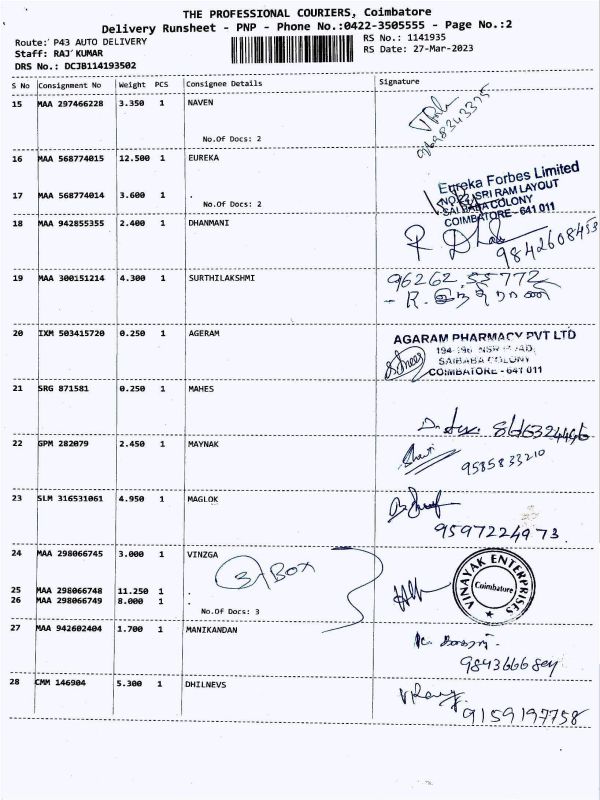 THE PROFESSIONAL COURIERS, Coimbatore
Delivery Runsheet - PNP - Phone No.:0422-3505555 - Page No.:2
Route: P43 AUTO DELIVERY RS No.: 1141935
Staff: RAJ KUMAR RS Date: 27-Mar-2023
DRS No.: DCJB114193502
S No Consignment No Weight PCS Consignee Details Signature
15 MAA 297466228 3.350 1 NAVEN
No.Of Docs: 2
16 MAA 568774015 12.500 1 EUREKA
Eureka Forbes Limited
SRI RAM LAYOUT
17 MAA 568774014 3.600 1 .
SAIBABA COLONY
No.Of Docs: 2
COIMBATORE - 641 011
18 MAA 942855355 2.400 1 DHANMANI
9842608453
19 MAA 300151214 4.300 1 SURTHILAKSHMI
96262 55772
20 IXM 503415720 0.250 1 AGERAM
AGARAM PHARMACY PVT LTD
SAIBABA COLONY
COIMBATORE - 641 011
21 SRG 871581 0.250 1 MAHES
22 GPM 282079 2.450 1 MAYNAK
9585833210
23 SLM 316531061 4.950 1 MAGLOK
9597224973
24 MAA 298066745 3.000 1 VINZGA
3 BOX
VINAYAK ENTERPRISES
Coimbatore
25 MAA 298066748 11.250 1 .
26 MAA 298066749 8.000 1 .
No.Of Docs: 3
27 MAA 942602404 1.700 1 MANIKANDAN
28 CMM 146904 5.300 1 DHILNEVS
9159197758